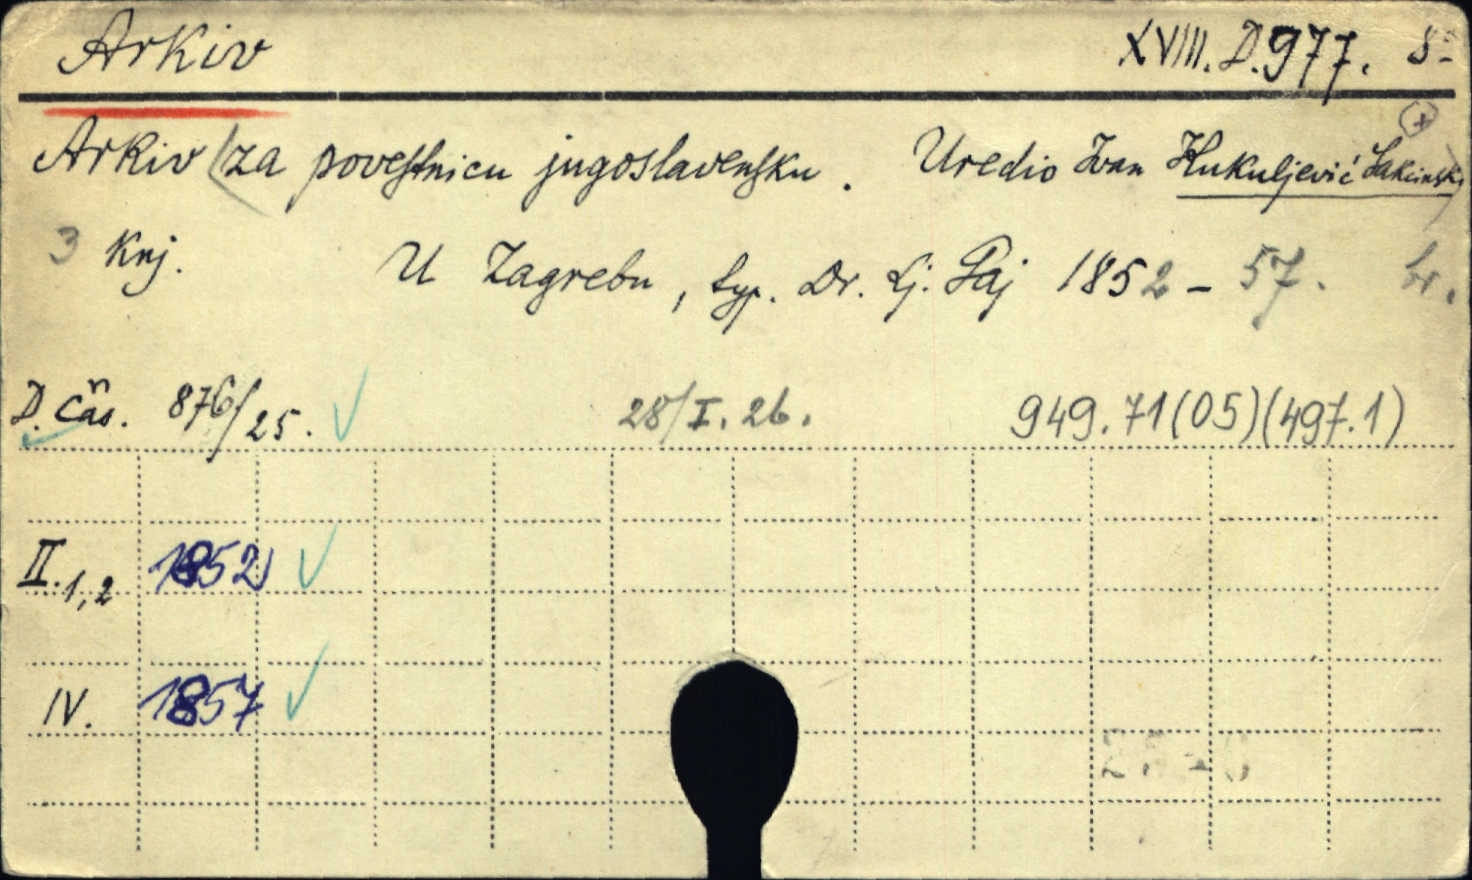 Arkiv XVIII. D. 977. 8°
Arkiv (za povestnicu jugoslavensku. Uredio Ivan Kukuljević Sakcinski)
3 Knj. U Zagrebu, typ. Dr. Lj. Gaj 1852-57. br.
D. čas. 876/25. 28/I. 26. 949.71(05)(497.1)
II. 1,2 1852
IV. 1857